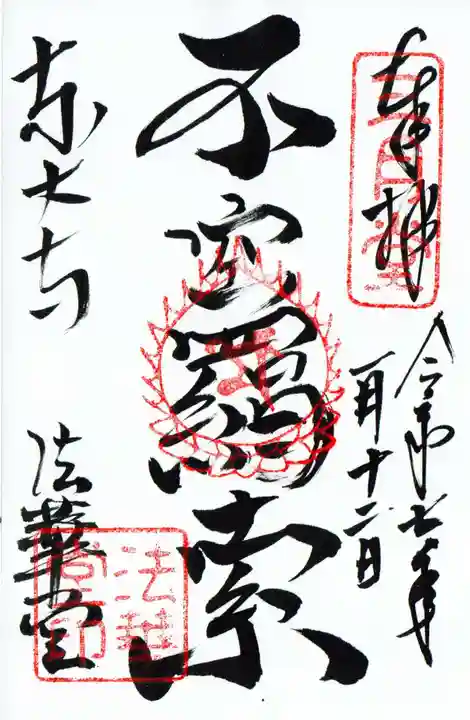 奉拝
三月堂
令和七年
一月十二日
不空羂索
東大寺
法華堂
法華堂印